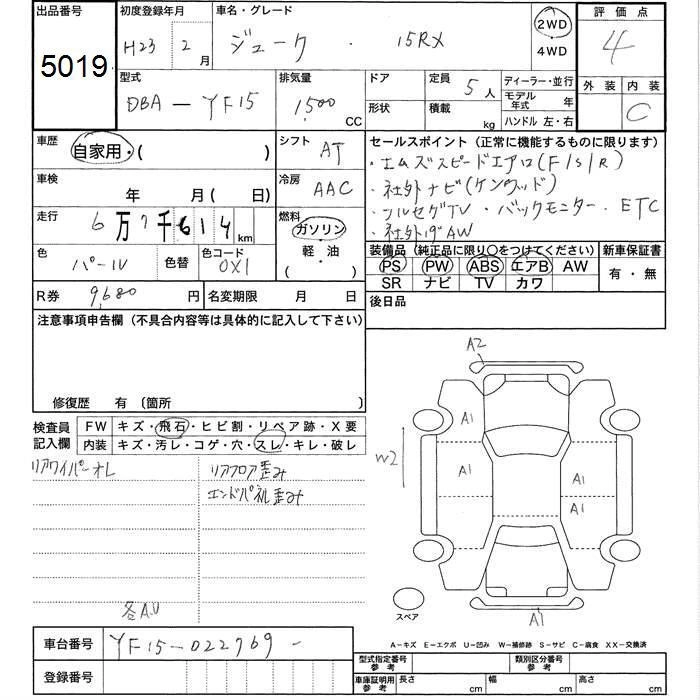 出品番号
5019
初度登録年月
H23 2月
車名・グレード
ジューク ・ 15RX
2WD
・
4WD
評価点
4
外装 内装
C
型式
DBA-YF15
排気量
1500 CC
ドア
形状
定員 5人
積載 kg
ディーラー・並行
モデル年式 年
ハンドル 左・右
車歴
自家用・( )
シフト
AT
車検
年 月( 日)
冷房
AAC
走行
6万7千614km
燃料
ガソリン
軽・油
( )
色
パール
色替
色コード
0X1
R券 9,680 円
名変期限 月 日
セールスポイント(正常に機能するものに限ります)
・エムズスピードエアロ(F/S/R)
・社外ナビ(ケンウッド)
・フルセグTV ・バックモニター ・ETC
・社外19AW
装備品(純正品に限り○をつけてください)
PS PW ABS エアB AW
SR ナビ TV カワ
新車保証書
有・無
後日品
注意事項申告欄(不具合内容等は具体的に記入して下さい)
修復歴 有 (箇所 )
検査員記入欄
FW キズ・飛石・ヒビ割・リペア跡・X要
内装 キズ・汚レ・コゲ・穴・スレ・キレ・破レ
リアワイパーオレ
リアフロア歪み
エンドパネル歪み
各A.U
A2
A1
W2
A1
A1
A1
A1
スペア
A1
A-キズ E-エクボ U-凹み W-補修跡 S-サビ C-腐食 XX-交換済
車台番号 YF15-022769-
登録番号
型式指定番号参考
類別区分番号参考
車庫証明用参考
長さ cm 幅 cm 高さ cm